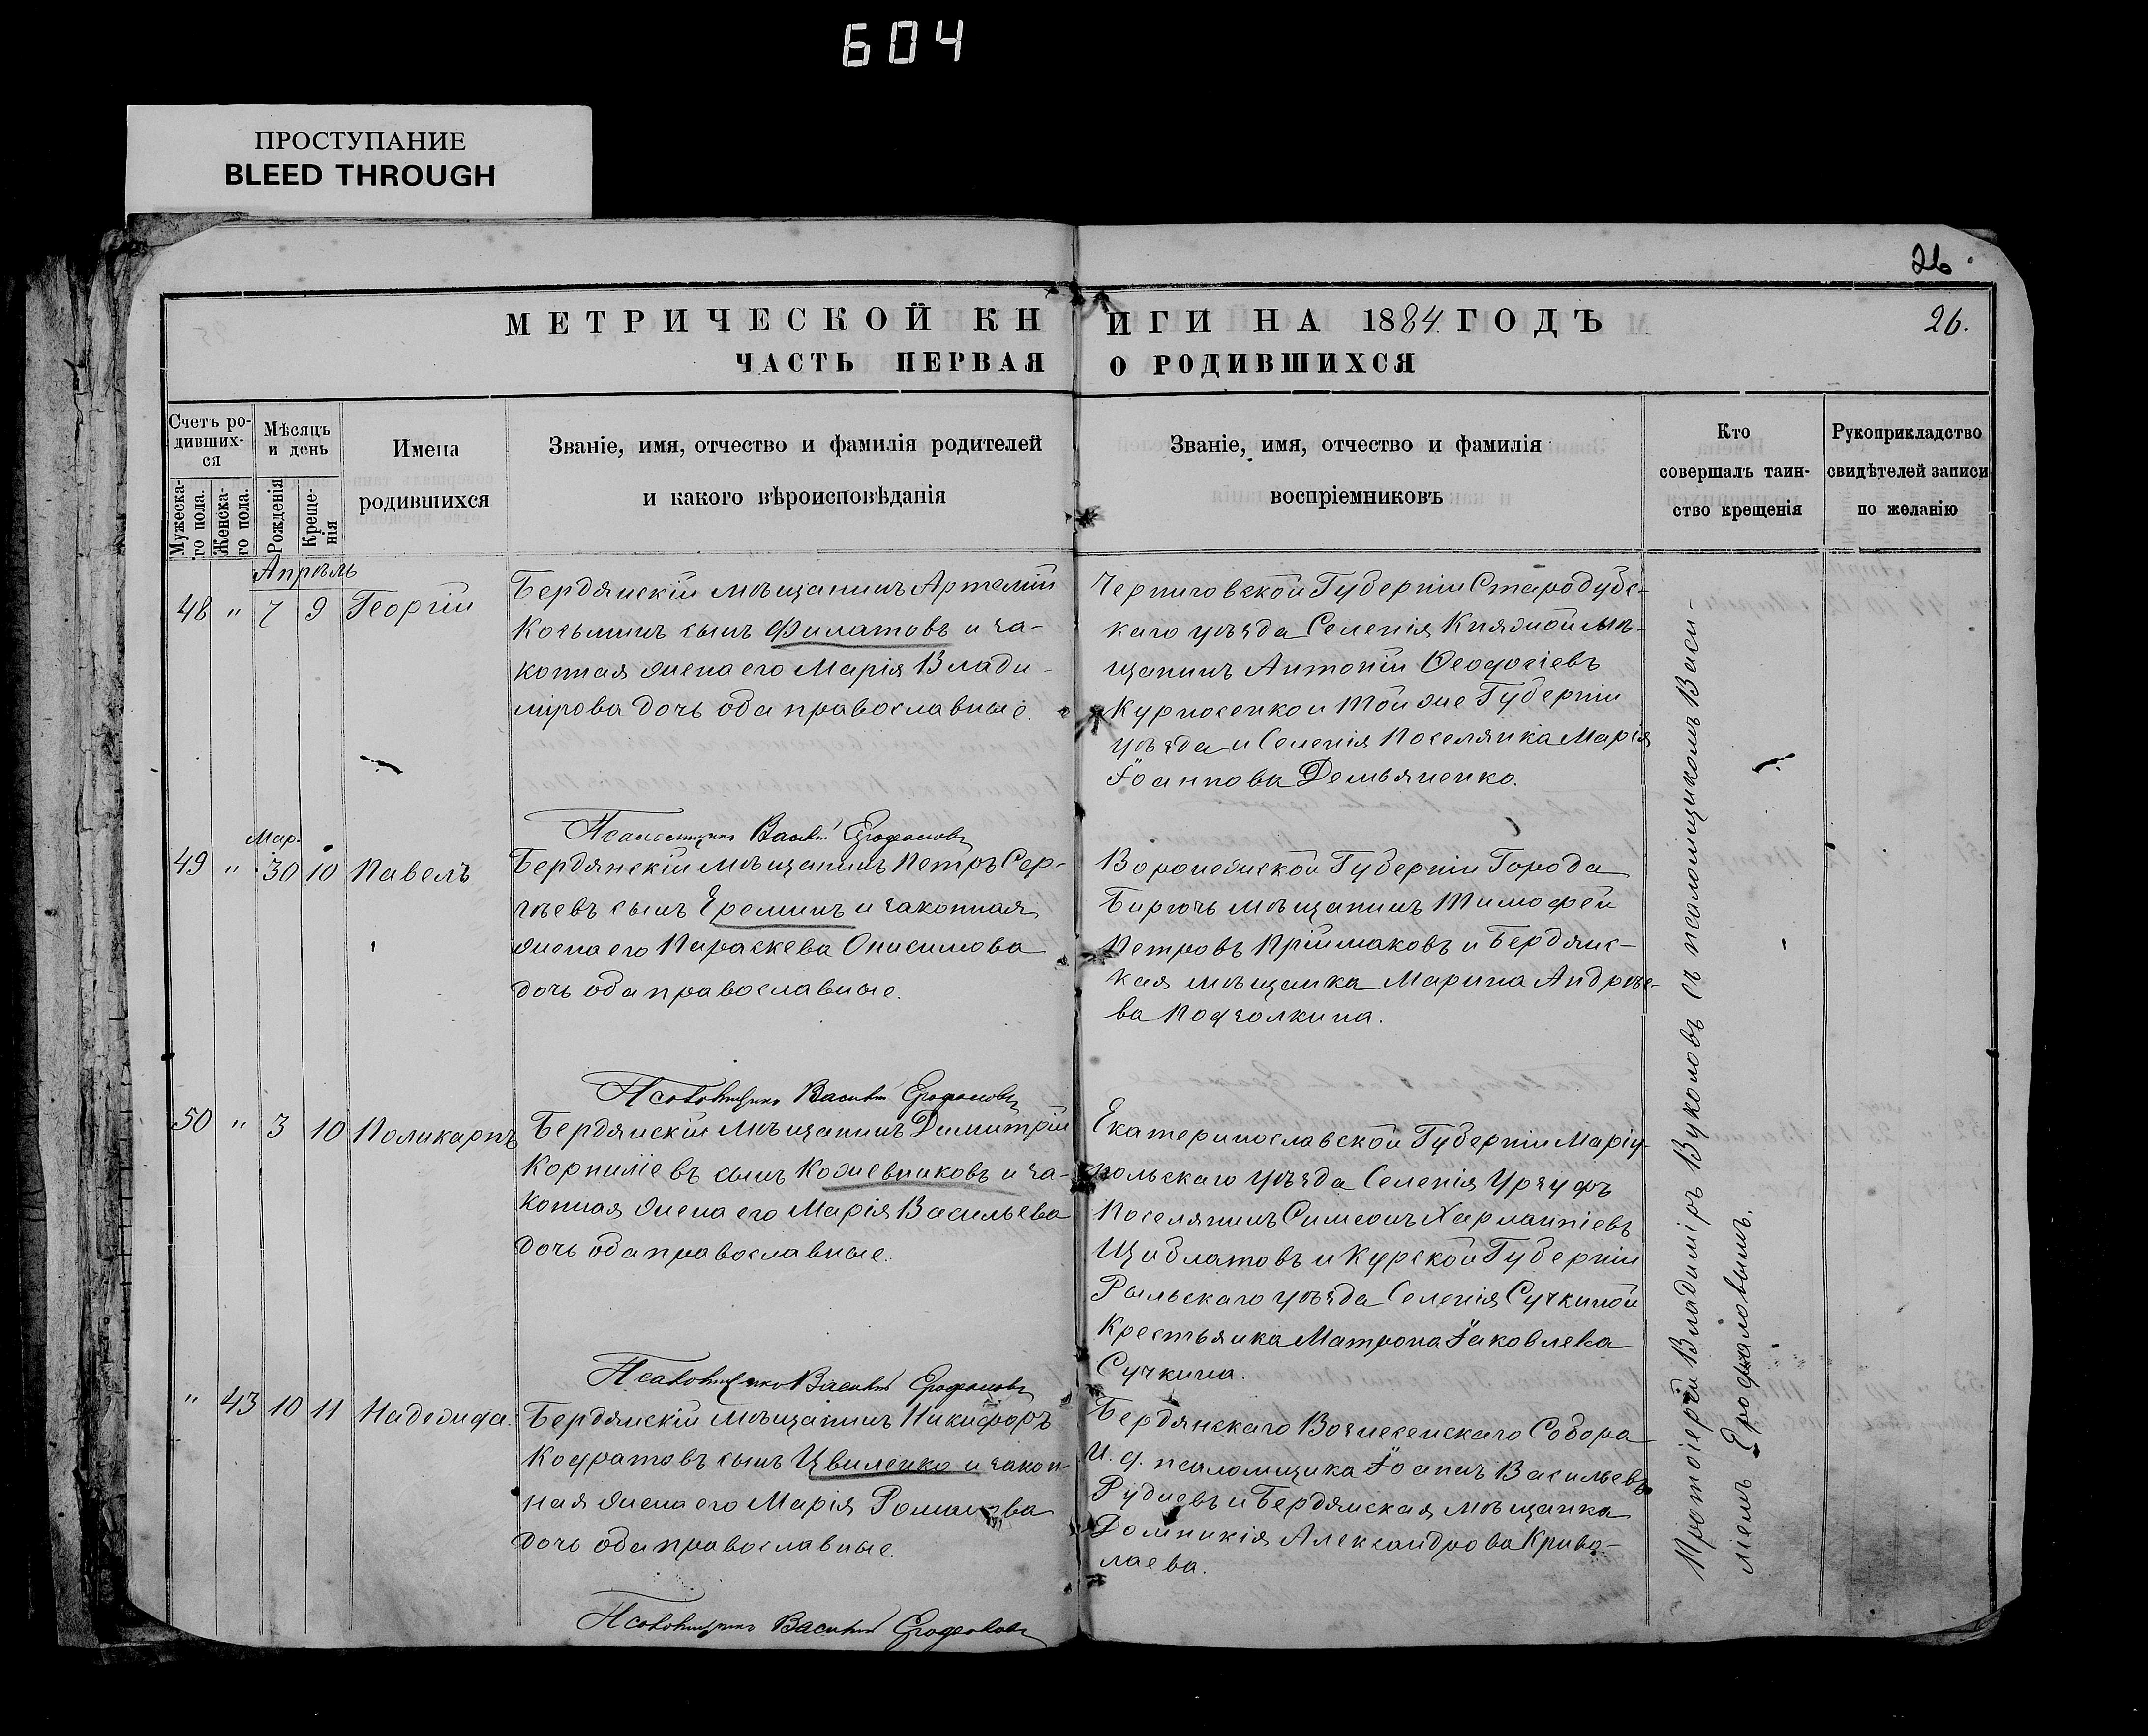 604
ПРОСТУПАНИЕ
BLEED THROUGH
26
МЕТРИЧЕСКОЙ КНИГИ НА 1884 ГОДЪ
26.
ЧАСТЬ ПЕРВАЯ О РОДИВШИХСЯ
Счетъ ро-
дивших-
ся
Мужеска-
го пола.
Женска-
го пола.
Мѣсяцъ
и день
Рожденія
Креще-
нія
Имена
родившихся
Званіе, имя, отчество и фамилія родителей
и какого вѣроисповѣданія
Званіе, имя, отчество и фамилія
воспріемниковъ
Кто
совершалъ таин-
ство крещенія
Рукоприкладство
свидѣтелей записи
по желанію
Апрѣль
48 " 7 9 Георгій
Бердянскій мѣщанинъ Артемій
Косьминъ сынъ Филатовъ и за-
конная жена его Марія Влади-
мірова дочь оба православные.
Черниговской Губерніи Стародубс-
каго уѣзда Селенія Княжой мѣ-
щанинъ Антоній Ѳеодосіевъ
Курносенко и той же Губерніи
уѣзда и Селенія Поселянка Марія
Іоаннова Демьяненко.
Псаломщикъ Василій Ерофаловъ
Мар.
49 " 30 10 Павелъ
Бердянскій мѣщанинъ Петръ Сер-
гѣевъ сынъ Ереминъ и законная
жена его Параскева Онисимова
дочь оба православные.
Воронежской Губерніи Города
Бирючь мѣщанинъ Тимофей
Петровъ Пріймаковъ и Бердянс-
кая мѣщанка Марина Андрѣе-
ва Подзолкина.
Псаломщикъ Василій Ерофаловъ
50 " 3 10 Поликарпъ
Бердянскій мѣщанинъ Димитрій
Корниліевъ сынъ Кожевниковъ и за-
конная жена его Марія Васильева
дочь оба православные.
Екатеринославской Губерніи Маріу-
польскаго уѣзда Селенія Урзуфъ
Поселянинъ Симеонъ Харлампіевъ
Щиблатовъ и Курской Губерніи
Рыльскаго уѣзда Селенія Сучкиной
Крестьянка Матрона Іаковлева
Сучкина.
Псаломщикъ Василій Ерофаловъ
" 43 10 11 Надежда.
Бердянскій мѣщанинъ Никифоръ
Кодратовъ сынъ Цвиленко и закон-
ная жена его Марія Романова
дочь оба православные.
Бердянскаго Вознесенскаго Собора
И. д. псаломщика Іоаннъ Васильевъ
Рудневъ и Бердянская мѣщанка
Домникія Александрова Криво-
лаева.
Псаломщикъ Василій Ерофаловъ
Протоіерей Владиміръ Вуколовъ съ псаломщикомъ Васи-
ліемъ Ерофаловымъ.